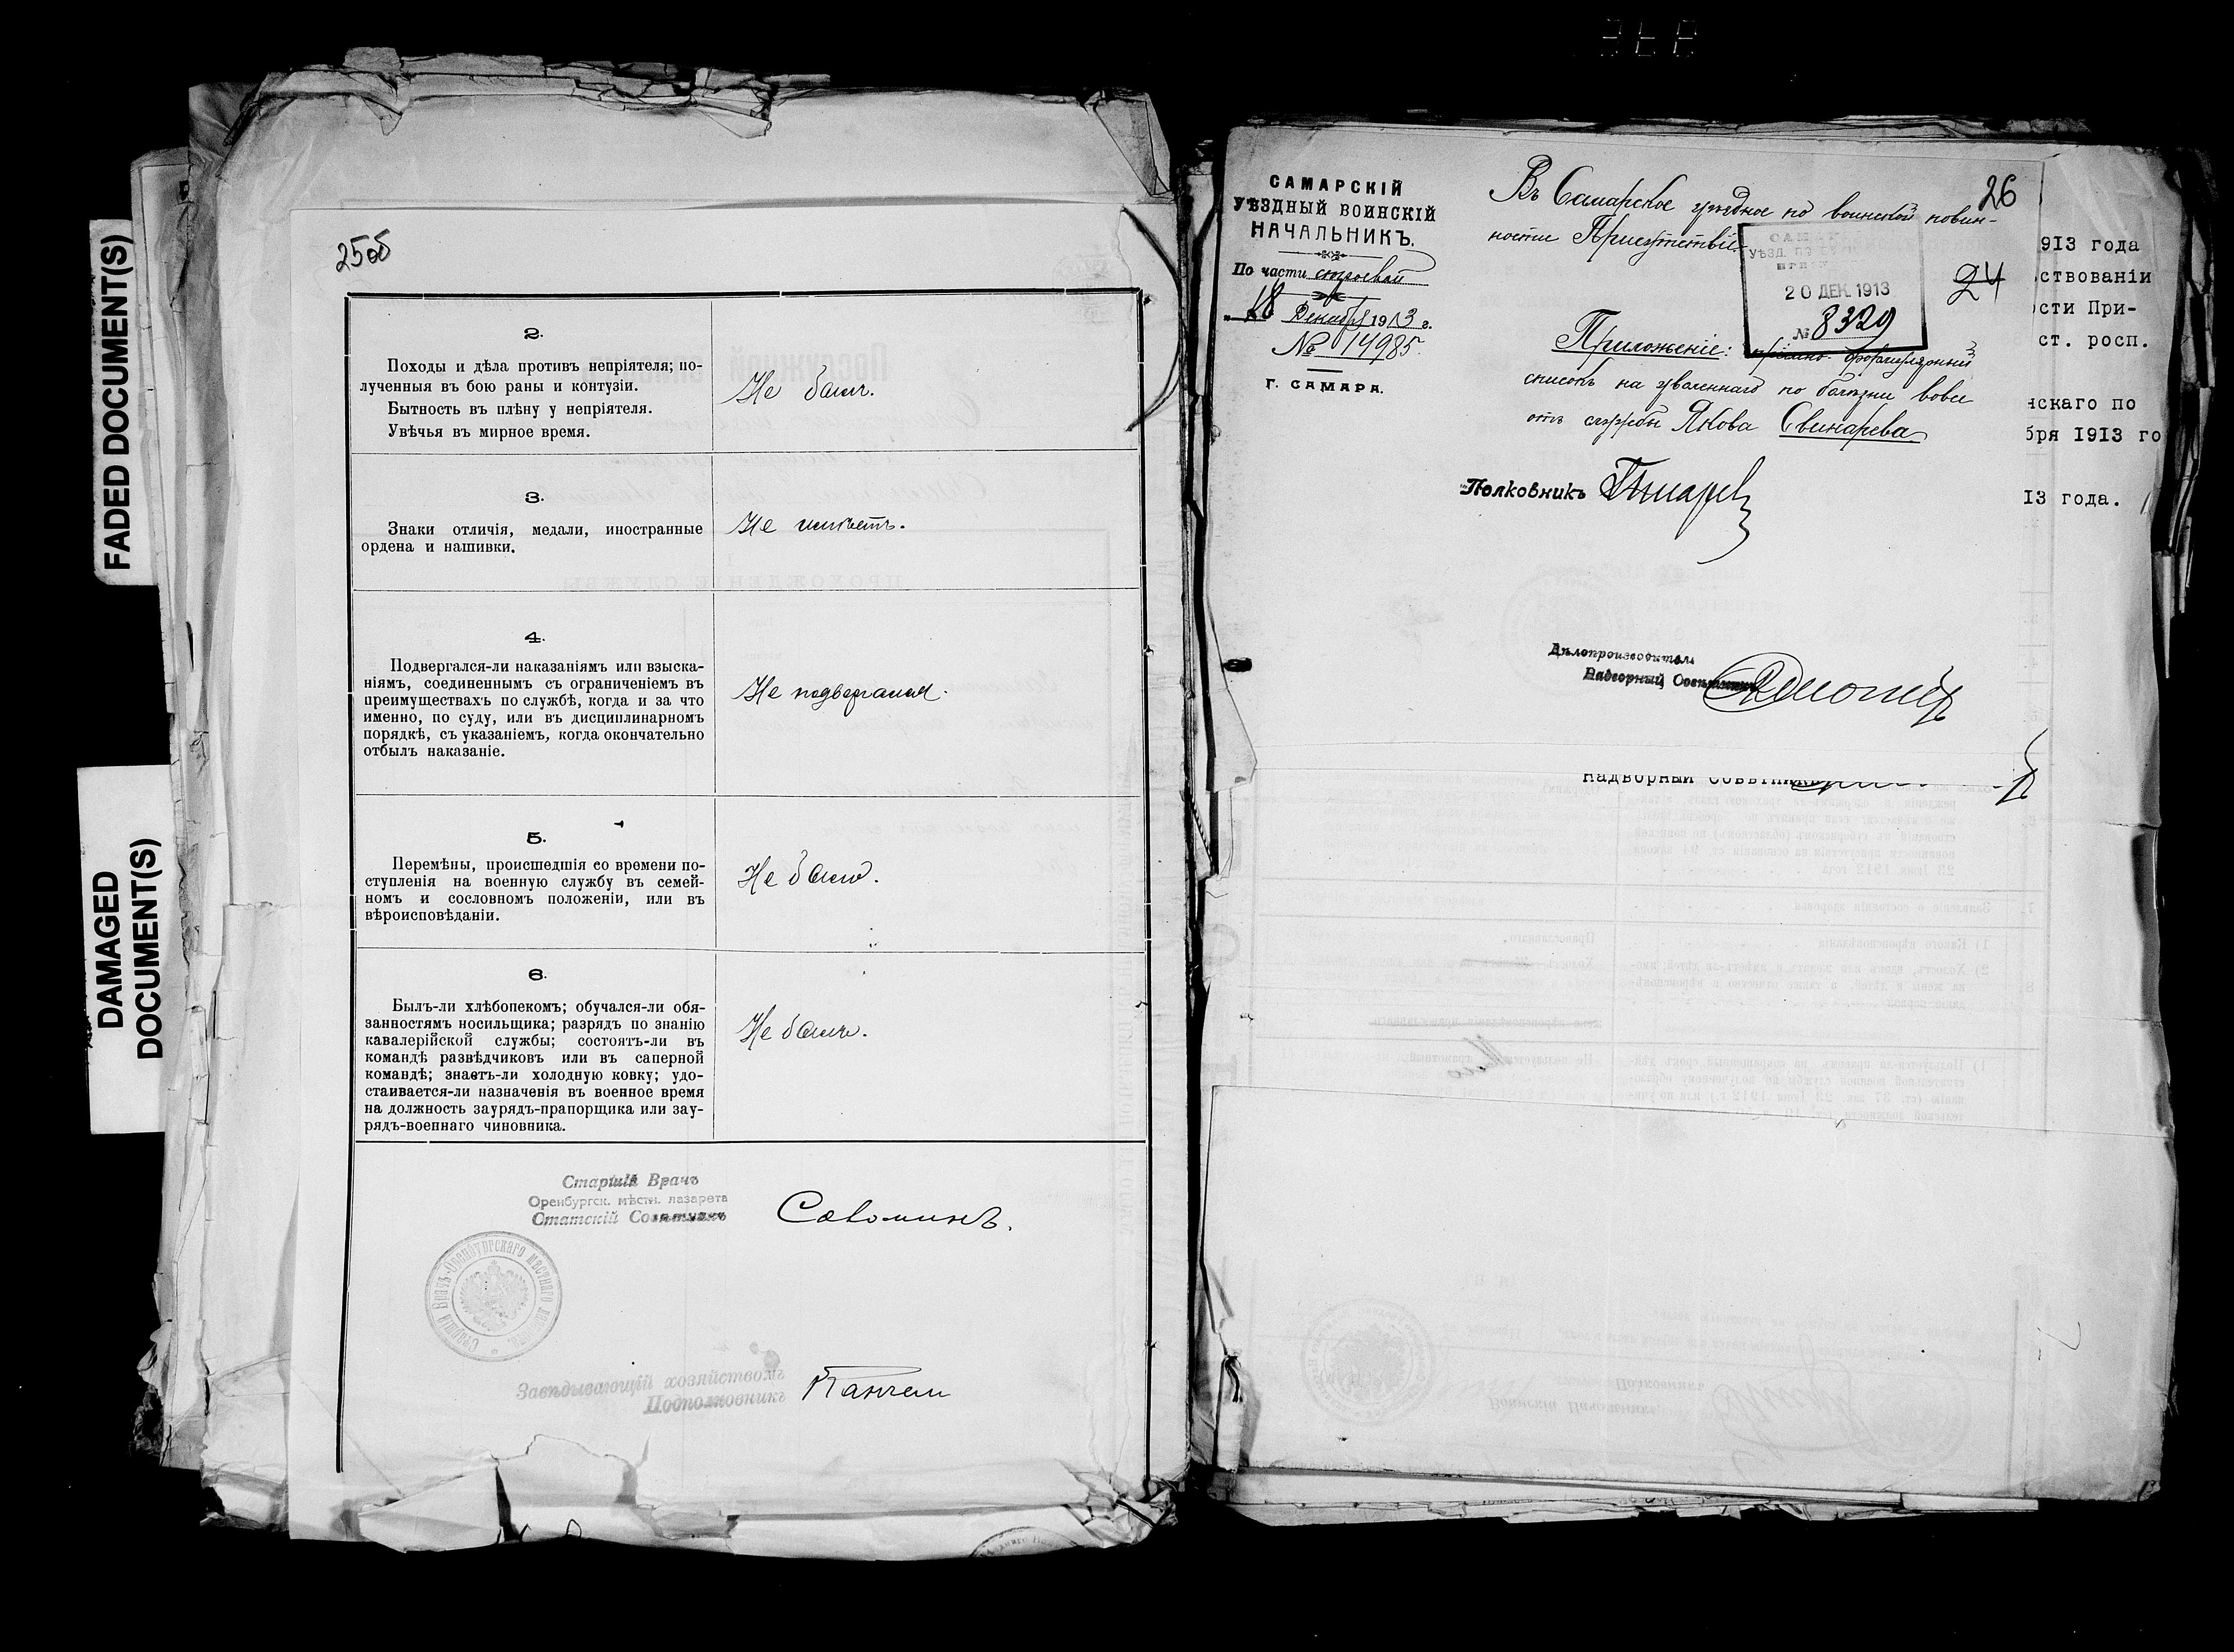 FADED DOCUMENT(S)
DAMAGED
DOCUMENT(S)
25об
2.
Походы и дѣла противъ непріятеля; по-
лученныя въ бою раны и контузіи.
Бытность въ плѣну у непріятеля.
Увѣчья въ мирное время.
Не былъ.
3.
Знаки отличія, медали, иностранные
ордена и нашивки.
Не имѣетъ.
4.
Подвергался-ли наказаніямъ или взыска-
ніямъ, соединеннымъ съ ограниченіемъ въ
преимуществахъ по службѣ, когда и за что
именно, по суду, или въ дисциплинарномъ
порядкѣ, съ указаніемъ, когда окончательно
отбылъ наказаніе.
Не подвергался.
5.
Перемѣны, происшедшія со времени по-
ступленія на военную службу въ семей-
номъ и сословномъ положеніи, или въ
вѣроисповѣданіи.
Не было.
6.
Былъ-ли хлѣбопекомъ; обучался-ли обя-
занностямъ носильщика; разрядъ по знанію
кавалерійской службы; состоятъ-ли въ
командѣ развѣдчиковъ или въ саперной
командѣ; знаетъ-ли холодную ковку; удо-
стаивается-ли назначенія въ военное время
на должность заурядъ-прапорщика или зау-
рядъ-военнаго чиновника.
Не былъ.
Старшій Врачъ
Оренбургск. мѣстн. лазарета
Статскій Совѣтникъ
Завѣдывающій хозяйствомъ
Подполковникъ
САМАРСКІЙ
УѢЗДНЫЙ ВОИНСКІЙ
НАЧАЛЬНИКЪ.
По части строевой
„18 Декабря 1913 г.
№ 14985.
Г. САМАРА.
26
Въ Самарское уѣздное по воинской повин-
ности Присутствіе
УѢЗД. ПО
20 ДЕК. 1913
№ 8329
24
Приложеніе: пріемно формулярный
списокъ на уволеннаго по болѣзни вовсе
отъ службы Якова Свинарева
Полковникъ
Дѣлопроизводитель
Надворный Совѣтникъ
Надворный Совѣтникъ
913 года
ствованіи
сти При-
ст. росп.
нскаго по
бря 1913 го
13 года.